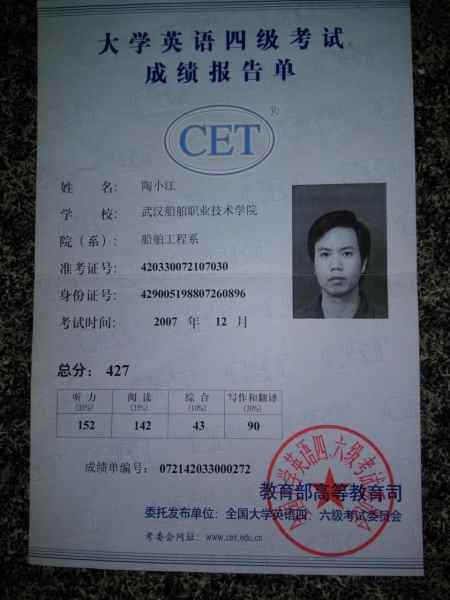 大学英语四级考试
成绩报告单
CET
姓 名: 陶小江
学 校: 武汉船舶职业技术学院
院(系): 船舶工程系
准考证号: 420330072107030
身份证号: 429005198807260896
考试时间: 2007 年 12 月
总分: 427
听力 阅读 综合 写作和翻译
(35%) (35%) (10%) (20%)
152 142 43 90
成绩单编号: 072142033000272
教育部高等教育司
委托发布单位: 全国大学英语四、六级考试委员会
考委会网址: www.cet.edu.cn